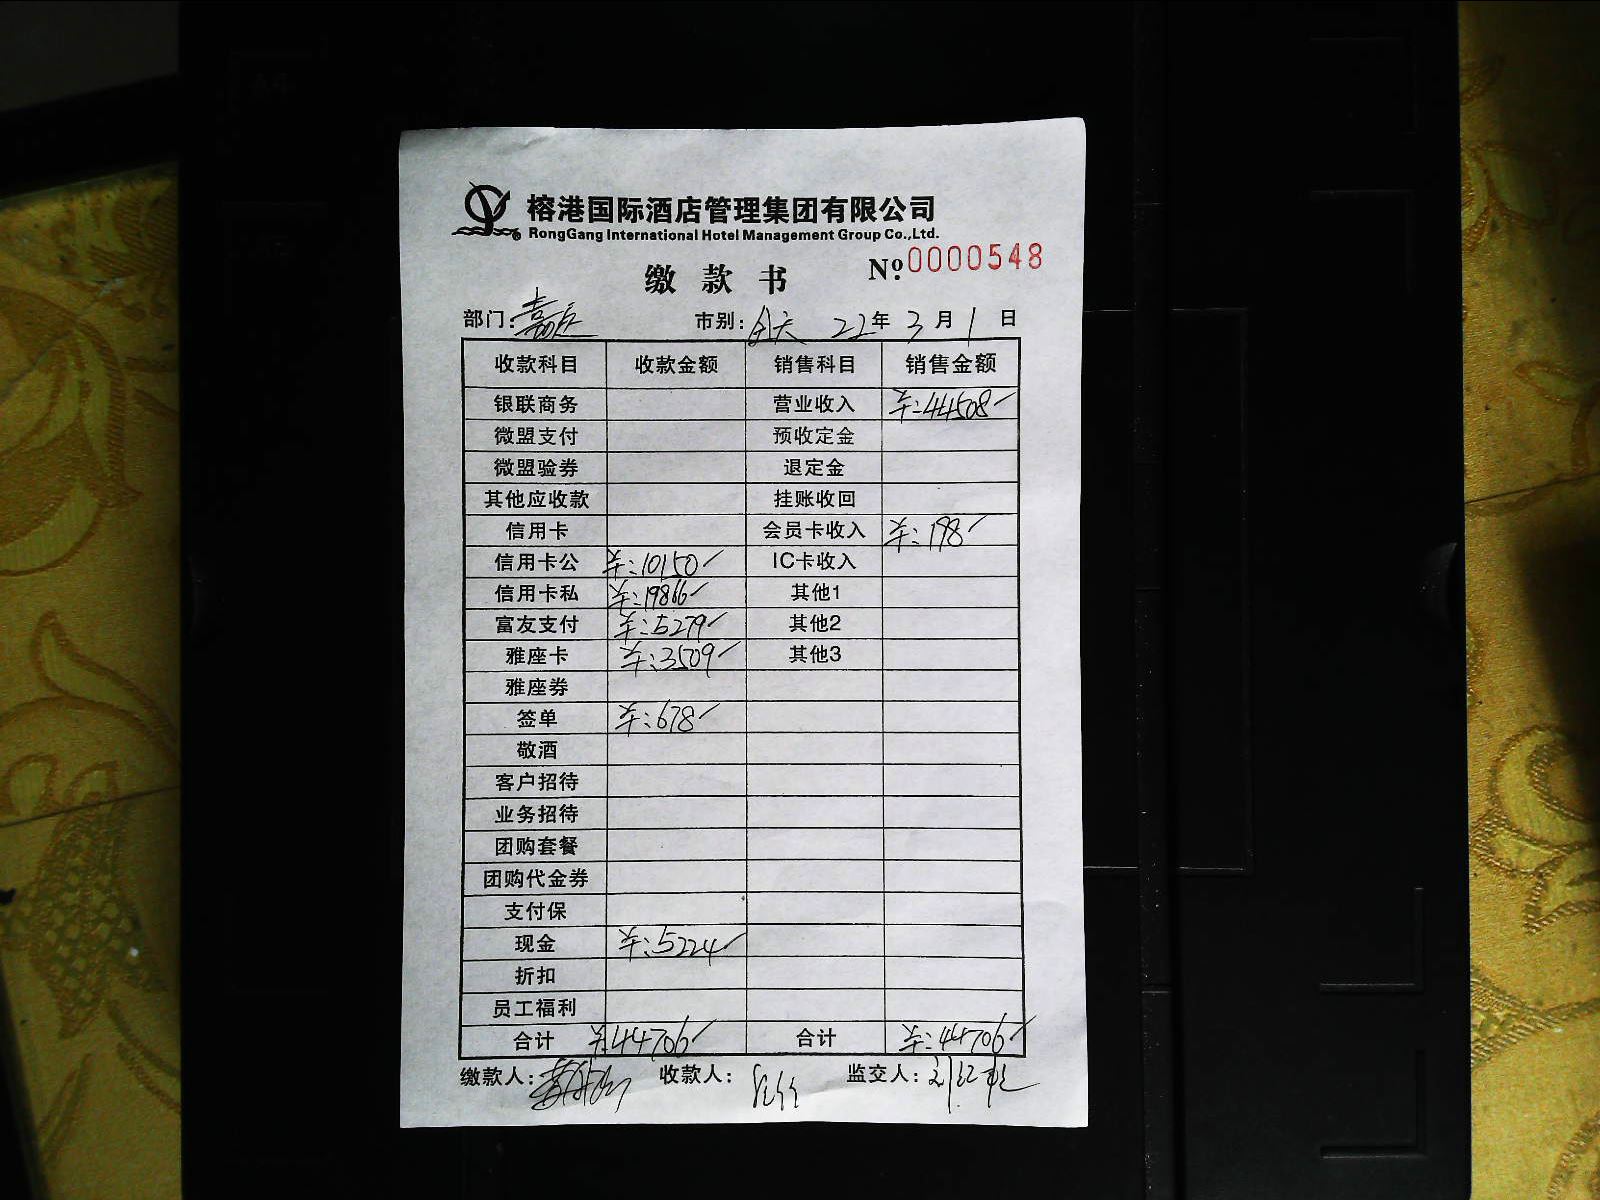 榕港国际酒店管理集团有限公司
RongGang International Hotel Management Group Co.,Ltd.
缴款书
№0000548
部门: 市别:全天 22年3月1日
收款科目 收款金额 销售科目 销售金额
银联商务 营业收入 44508
微盟支付 预收定金
微盟验券 退定金
其他应收款 挂账收回
信用卡 会员卡收入 198
信用卡公 10150 IC卡收入
信用卡私 19866 其他1
富友支付 5279 其他2
雅座卡 3509 其他3
雅座券
签单 678
敬酒
客户招待
业务招待
团购套餐
团购代金券
支付保
现金 5224
折扣
员工福利
合计 44706 合计 44706
缴款人: 收款人: 监交人: